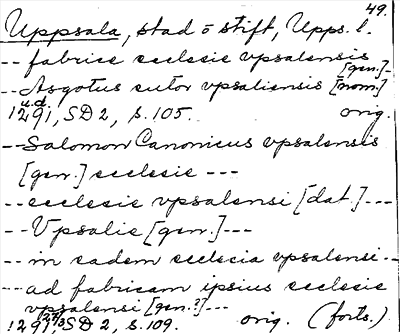 49.
Uppsala, stad o stift, Upps. l.
-- fabrice ecclesie vpsalensis [gen.] --
-- Asgotus sutor vpsaliensis [nom.]
u.d.
1291, SD 2, s. 105. orig.
-- Salomon Canonicus vpsalensis
[gen.] ecclesie ---
-- ecclesie vpsalensi [dat.] ---
-- Vpsalie [gen.] ---
-- in eadem ecclecia vpsalensi --
-- ad fabricam ipsius ecclesie
vpsalensi [gen.?] ---
1291 27/3 SD 2, s. 109. orig. (forts.)